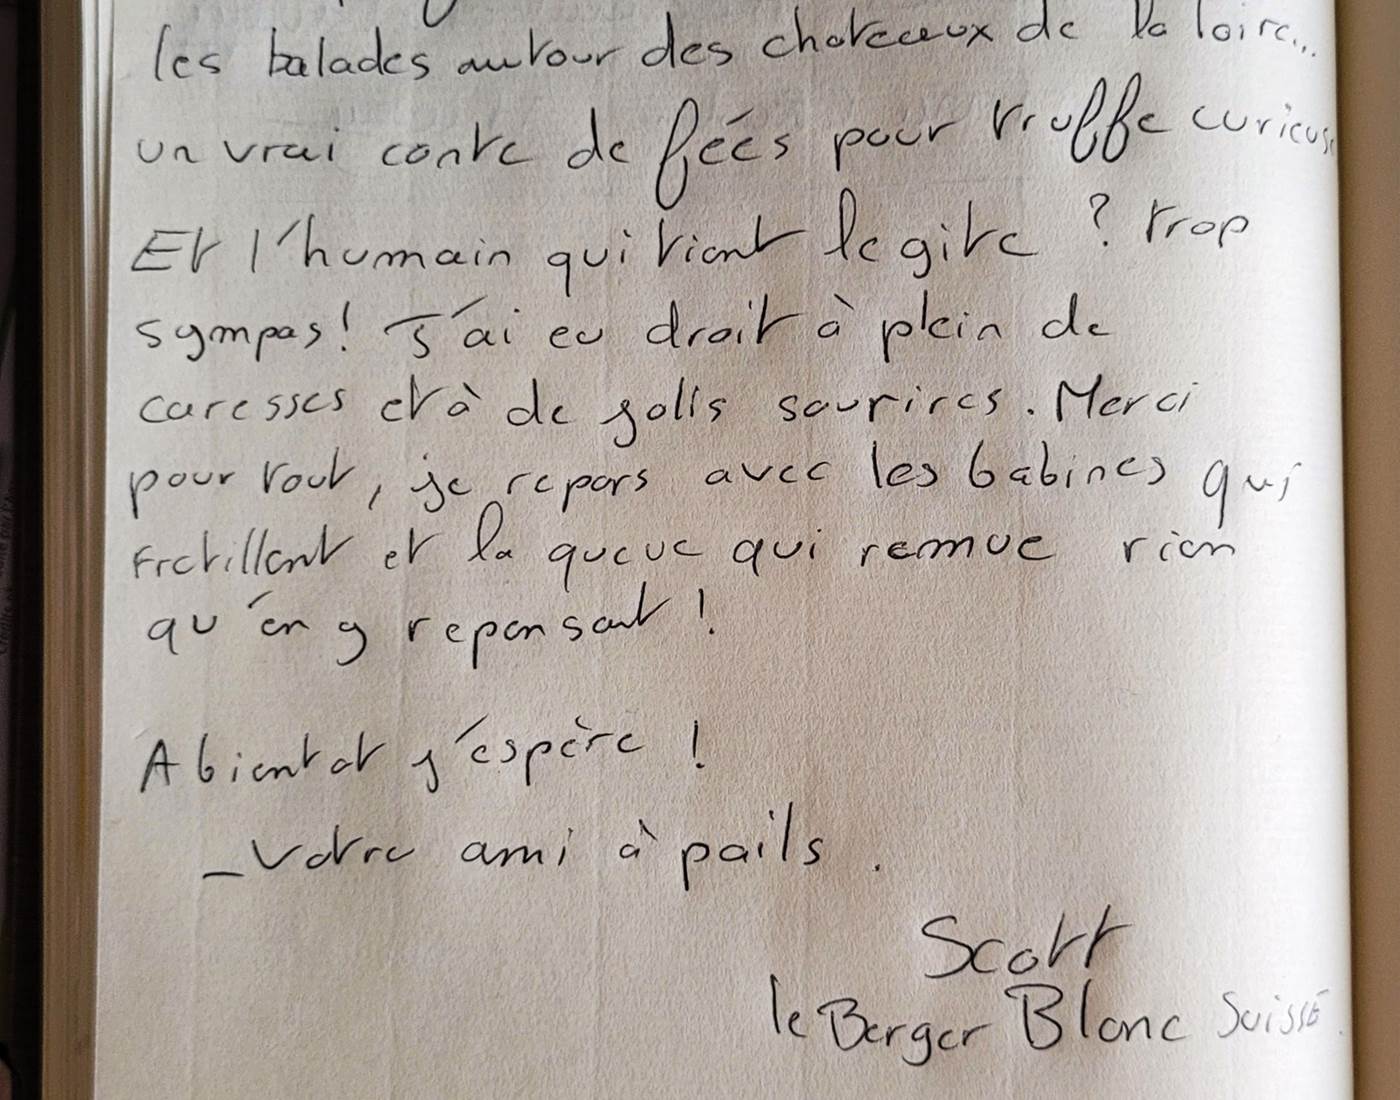 les balades autour des chateaux de la loire...
un vrai conte de fées pour truffe curieuse
Et l'humain qui tient le gite ? trop
sympas! J'ai eu droit à plein de
caresses et à de jolis sourires. Merci
pour tout, je repars avec les babines qui
frétillent et la queue qui remue rien
qu'en y repensant !
A bientot j'espère !
_ votre ami à poils.
Scott
le Berger Blanc Suisse.